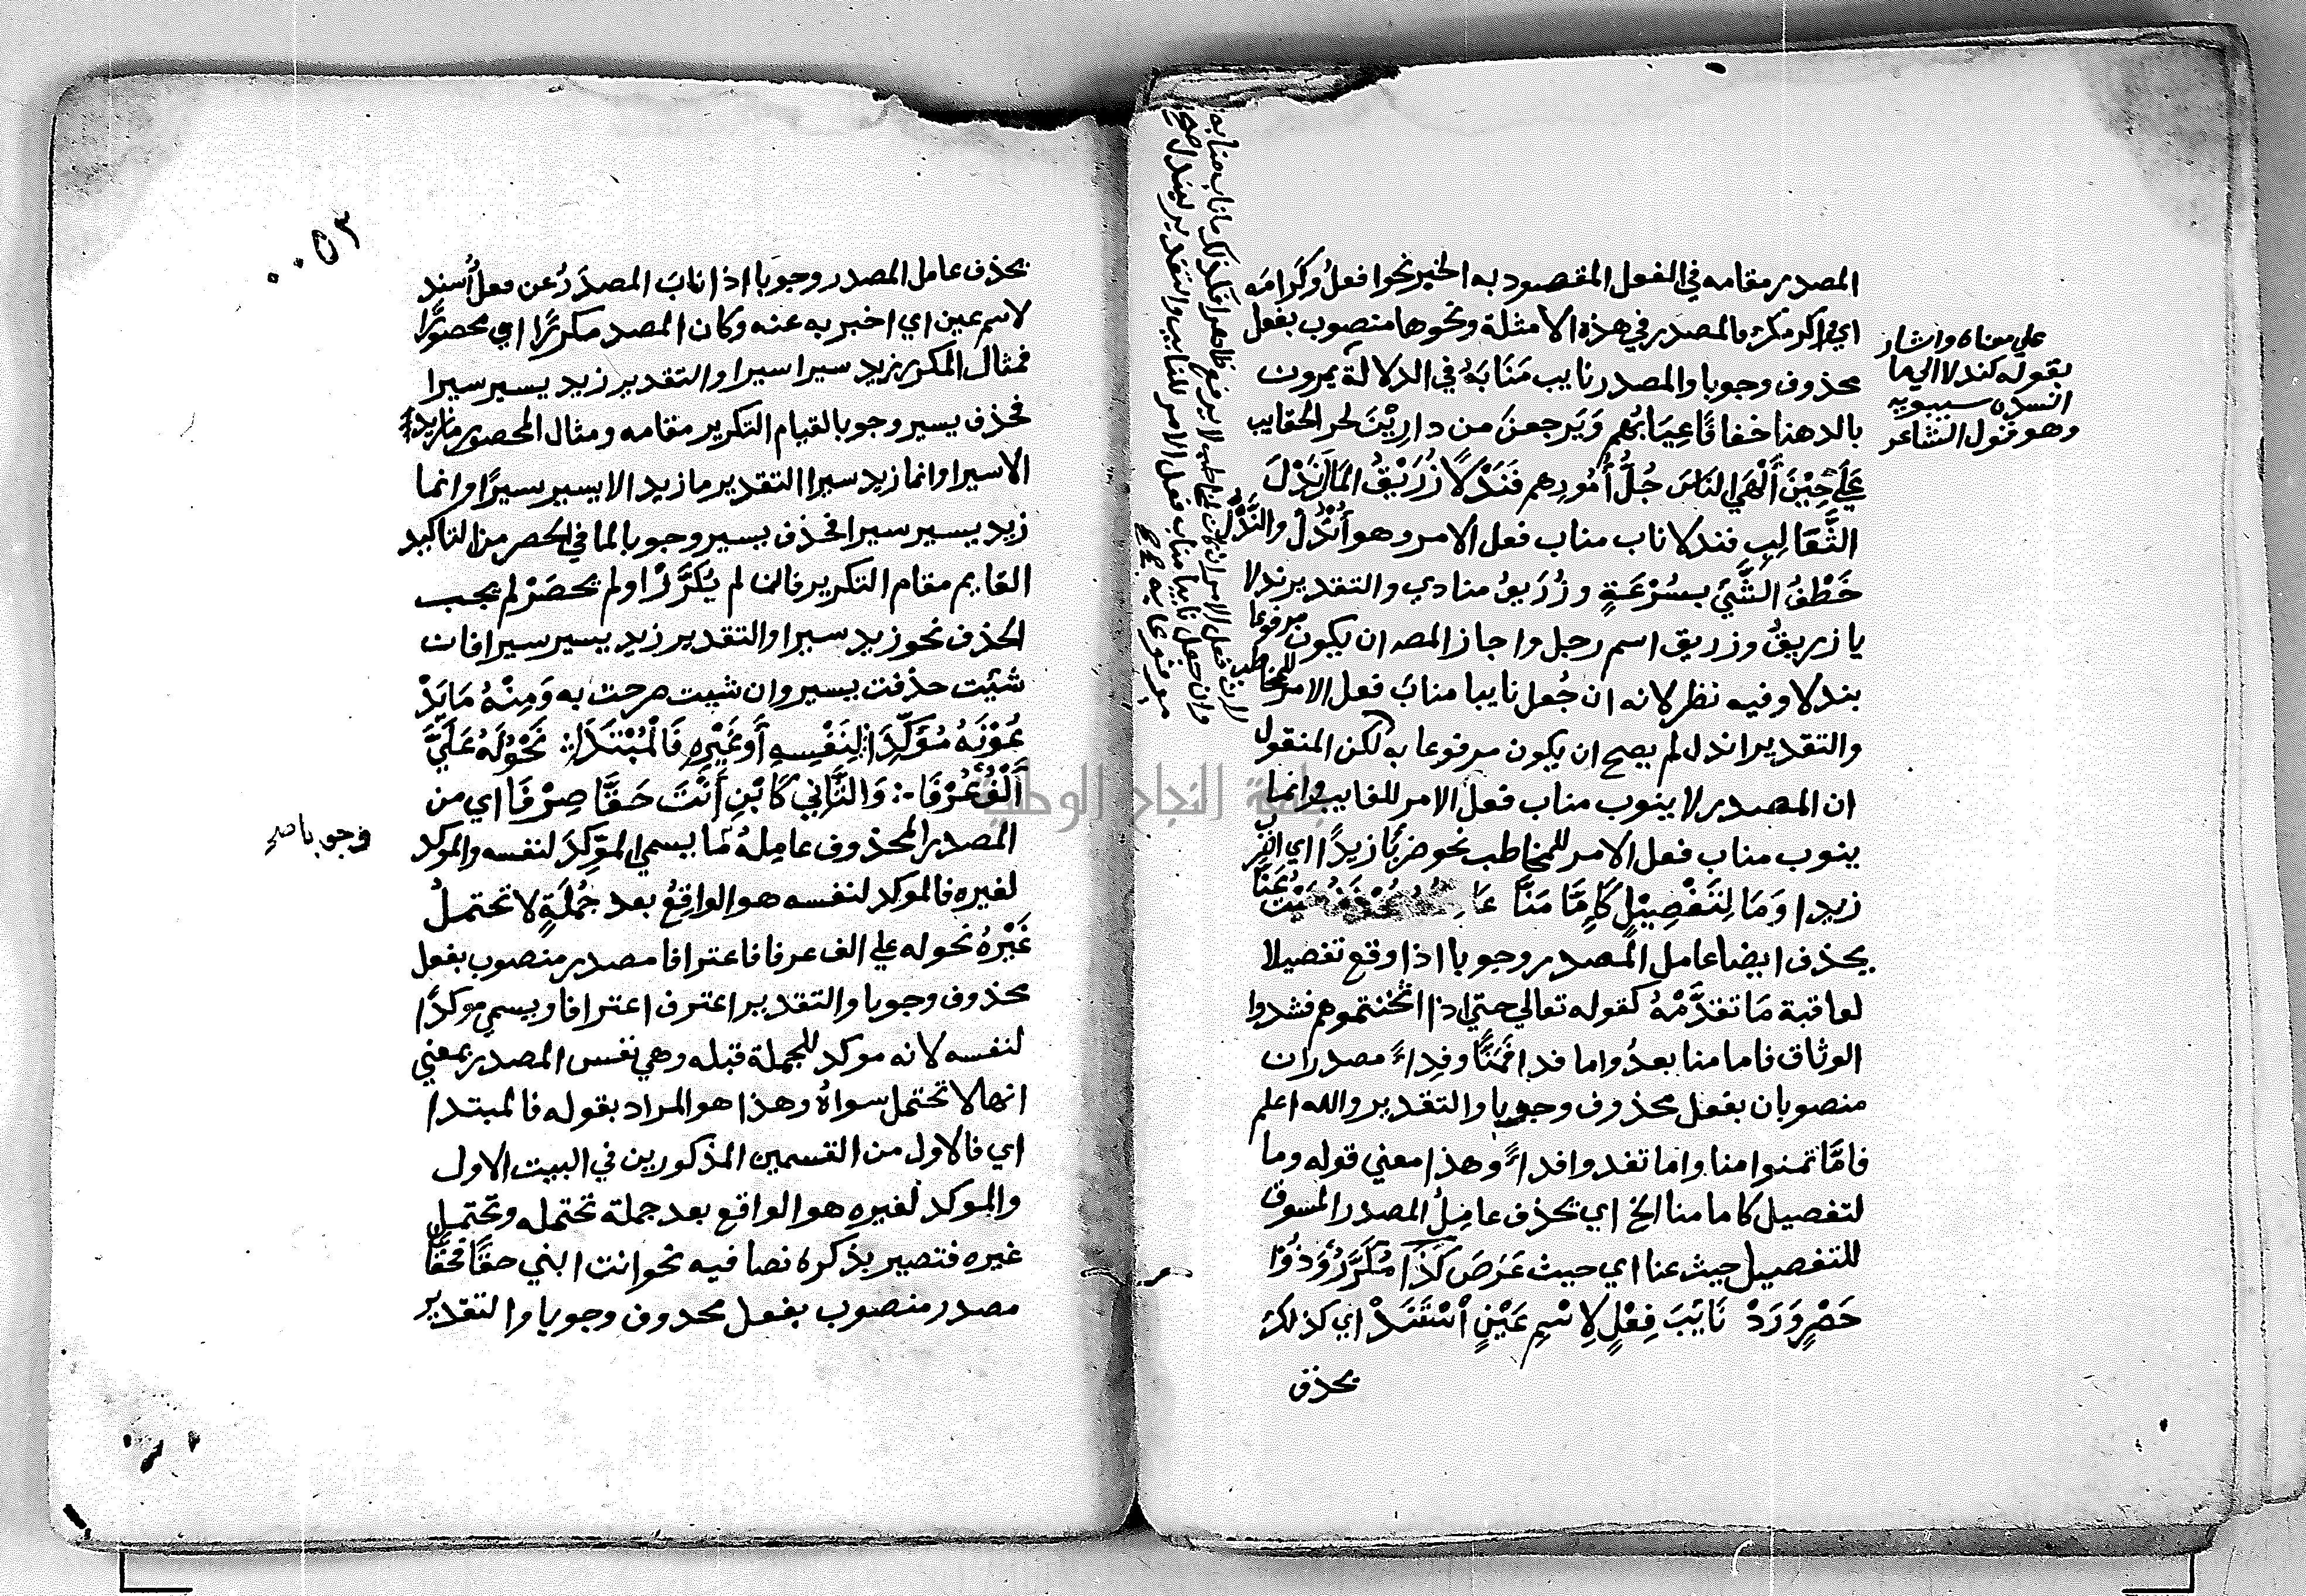 المصدر مقامه في الفعل المقصود به الخبر نحوا فعلُ وكَرَامَه
اي واكرمك فالمصدر في هذه الامثلة ونحوها منصوب بفعل
محذوف وجوبا والمصدر نايب مَنَابَهُ في الدلالة يمرون
بالدهنا خفافًا عِيَابُهُم وَيَرجعنَ من دارِيْنَ بحر الحقايب
عَلَي حِيْنَ أَلْهَي النَاسَ جُلُّ أُمُورِهم فَنَدْلًا زُرَيْقُ المَالَ نَدْلَ
الثَّعَالِبِ فندلا ناب مناب فعل الامر وهو أنْدُلْ والنَّدْلُ
خَطْفُ الشَّيْ بِسُرْعَةٍ وزُرَيقُ منادي والتقدير ندلا
يا زريقُ وزريق اسم رجل واجاز المصه ان يكون مرفوعا
بندلا وفيه نظر لانه ان جُعل نايبا منابَ فعل الامر للمخاطب
والتقدير اندل لم يصح ان يكون مرفوعا به لكن المنقول
ان المصدر لا ينوب مناب فعل الامر للغايب وانما
ينوب مناب فعل الامر للمخاطب نحو ضربًا زيدًا اي اضرب
زيدا وَمَا لِتَفْصِيْلٍ كَإِمَّا مَنَّا عَا يُحْذَفُ حَيْثُ عَنَّا
يحذف ايضا عامل المصدر وجوبا اذا وقع تفصيلا
لعاقبة مَا تقدَّمْهُ كقوله تعالي حتي اذا اثخنتموهم فشدوا
الوثاق فاما منا بعدُ واما فدا فَمَنًّا وفِداءً مصدران
منصوبان بفعل محذوف وجوبا والتقدير والله اعلم
فامَّا تمنوا منا واما تفدوا فداءً وهذا معني قوله وما
لتفصيل كاما منا الخ اي يحذف عامِلُ المصدر المسوق
للتفصيل حيث عنا اي حيث عَرَضَ كَذَا مُكَرَّرٌ وَذُوْا
حَصْرٍ وَرَدْ نَايِبَ فِعْلٍ لِاسْمِ عَيْنٍ اْسْتَنَدْ اي كذلك
يحذف
علي معناه واشار
بقوله كندلا الي ما
انشده سيبويه
وهو قول الشاعر
لان فعل الامر اذا كان للمخاطب لا يرفع ظاهرا فكذلك ما ناب منابه
وان جعل نايبا مناب فعل الامر للغايب والتقدير ليندل صح
مرفوعا به
٠٠٥٣
يحذف عامل المصدر وجوبا اذا نابَ المصدَرُ عن فعلٍ أُسند
لاسم عين اي اخبر به عنه وكان المصدر مكررًا اي محصورًا
فمثال المكرر زيد سيرا سيرا والتقدير زيد يسير سيرا
فحذف يسير وجوبا لقيام التكرير مقامه ومثال المحصور ما زيدٌ
الا سيرا وانما زيد سيرا التقدير ما زيد الا يسير سيرًا وانما
زيد يسير سيرا فحذف يسير وجوبا لما في الحصر من التاكيد
القايم مقام التكرير فان لم يُكَرَّرْ او لم يحصَرْ لم يجب
الحذف نحو زيد سيرا والتقدير زيد يسير سيرا فان
شيَت حذفت يسير وان شيت صرحت به وَمِنْهُ مَا يَدْ
عُوْنَهُ مُؤَكِّدَا: لِنَفْسِهِ أَوغَيْرِهِ فَالْمُبْتَدَا: نَحْوُ لَهُ عَلَيَّ
أَلْفٌ عُرْفَا: وَالثَّانِي كَابْنِ أَنْتَ حَقَّا صِرْفَا اي من
المصدر المحذوف عامِلهُ مَا يسمي المؤكِدَ لنفسه والموكد
لغيره فالموكد لنفسه هو الواقِعُ بعد جُملَةٍ لا تحتملُ
غَيْرهُ نحو له علي الف عرفا فاعترافا مصدر منصوب بفعل
محذوف وجوبا والتقدير اعترف اعترافا ويسمي موكدًا
لنفسه لانه موكد للجملة قبله وهي نفس المصدر بمعني
انها لا تحتمل سواهُ وهذا هو المراد بقوله فالمبتدا
اي فالاول من القسمين المذكورين في البيت الاول
والموكد لغيره هو الواقع بعد جملة تحتمله وتحتمل
غيره فتصير بذكره نصا فيه نحو انت ابني حقًا فحقًا
مصدر منصوب بفعل محذوف وجوبا والتقدير
وجوبا صح
جامعة النجاح الوطنية